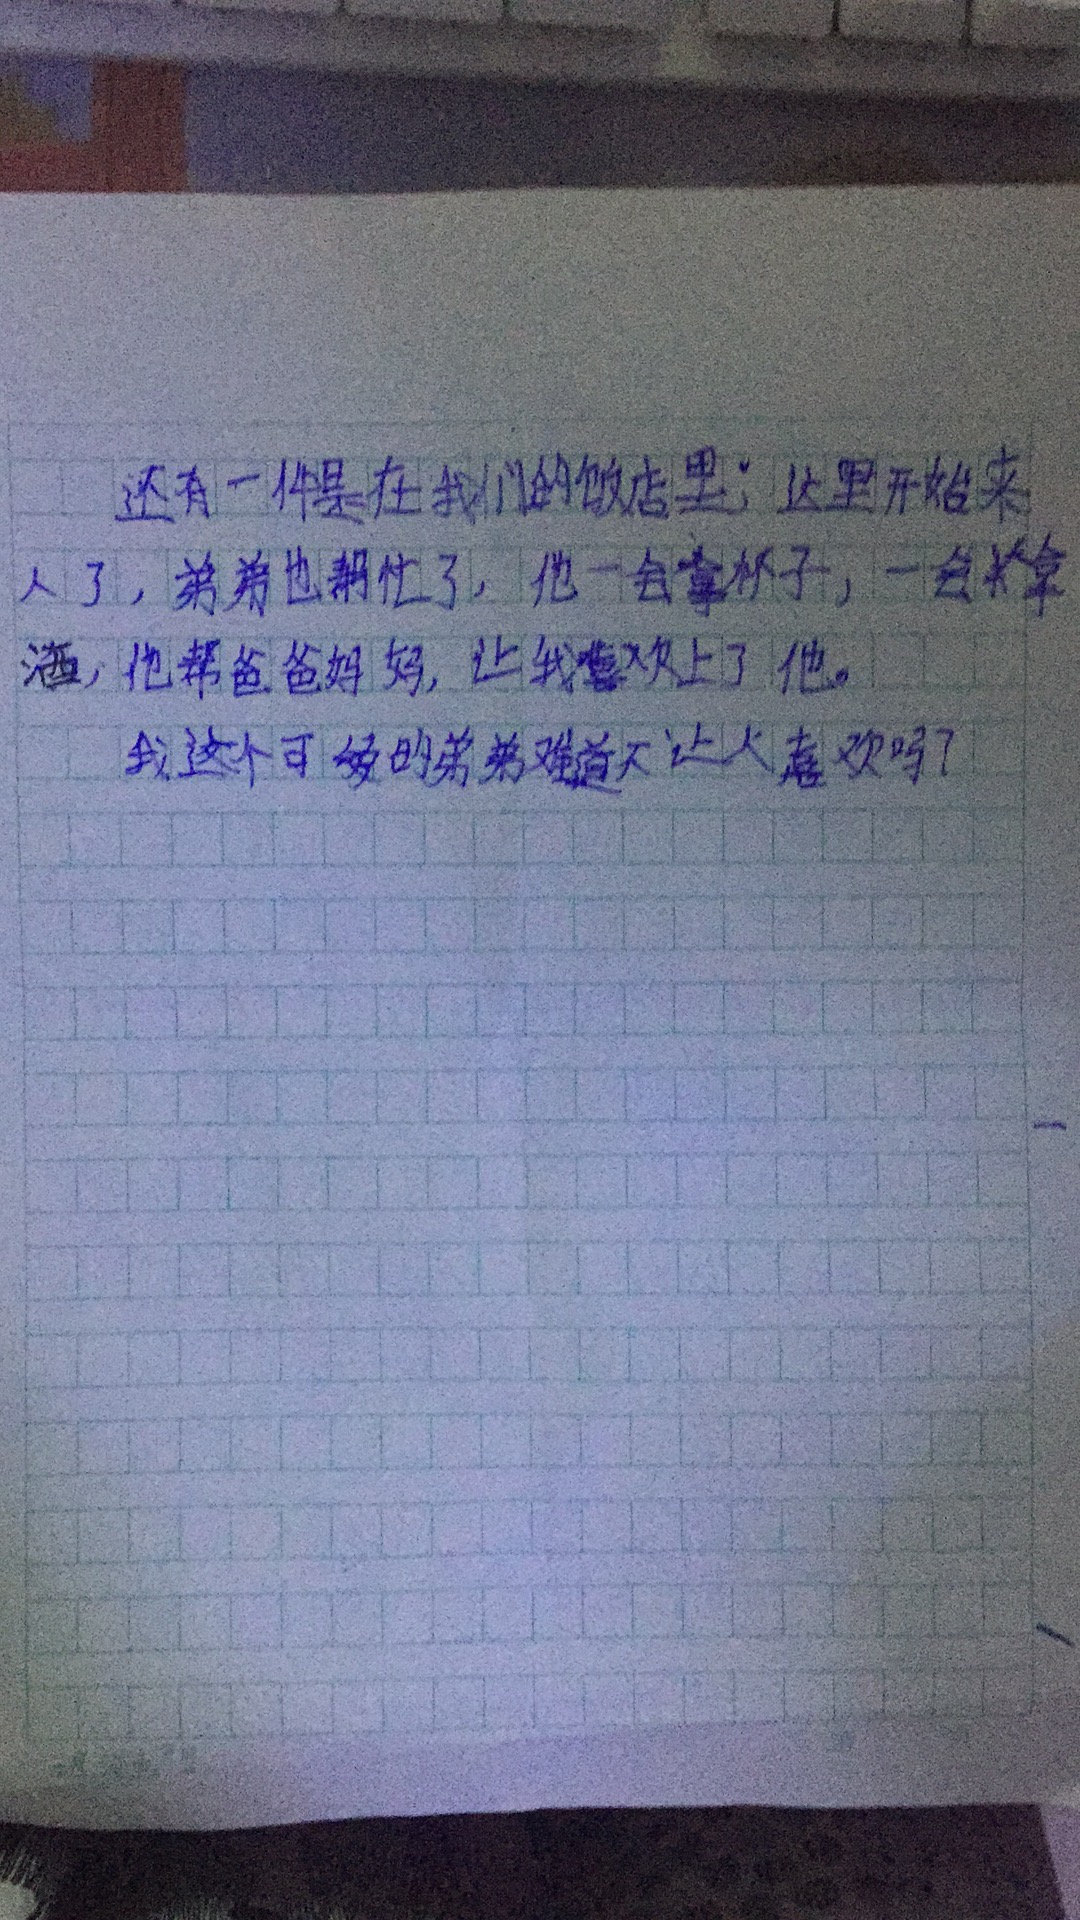 还有一件是在我们的饭店里；这里开始来
人了，弟弟也帮忙了，他一会拿杯子，一会拿
酒，他帮爸爸妈妈，让我喜欢上了他。
我这个可爱的弟弟难道不让人喜欢吗？